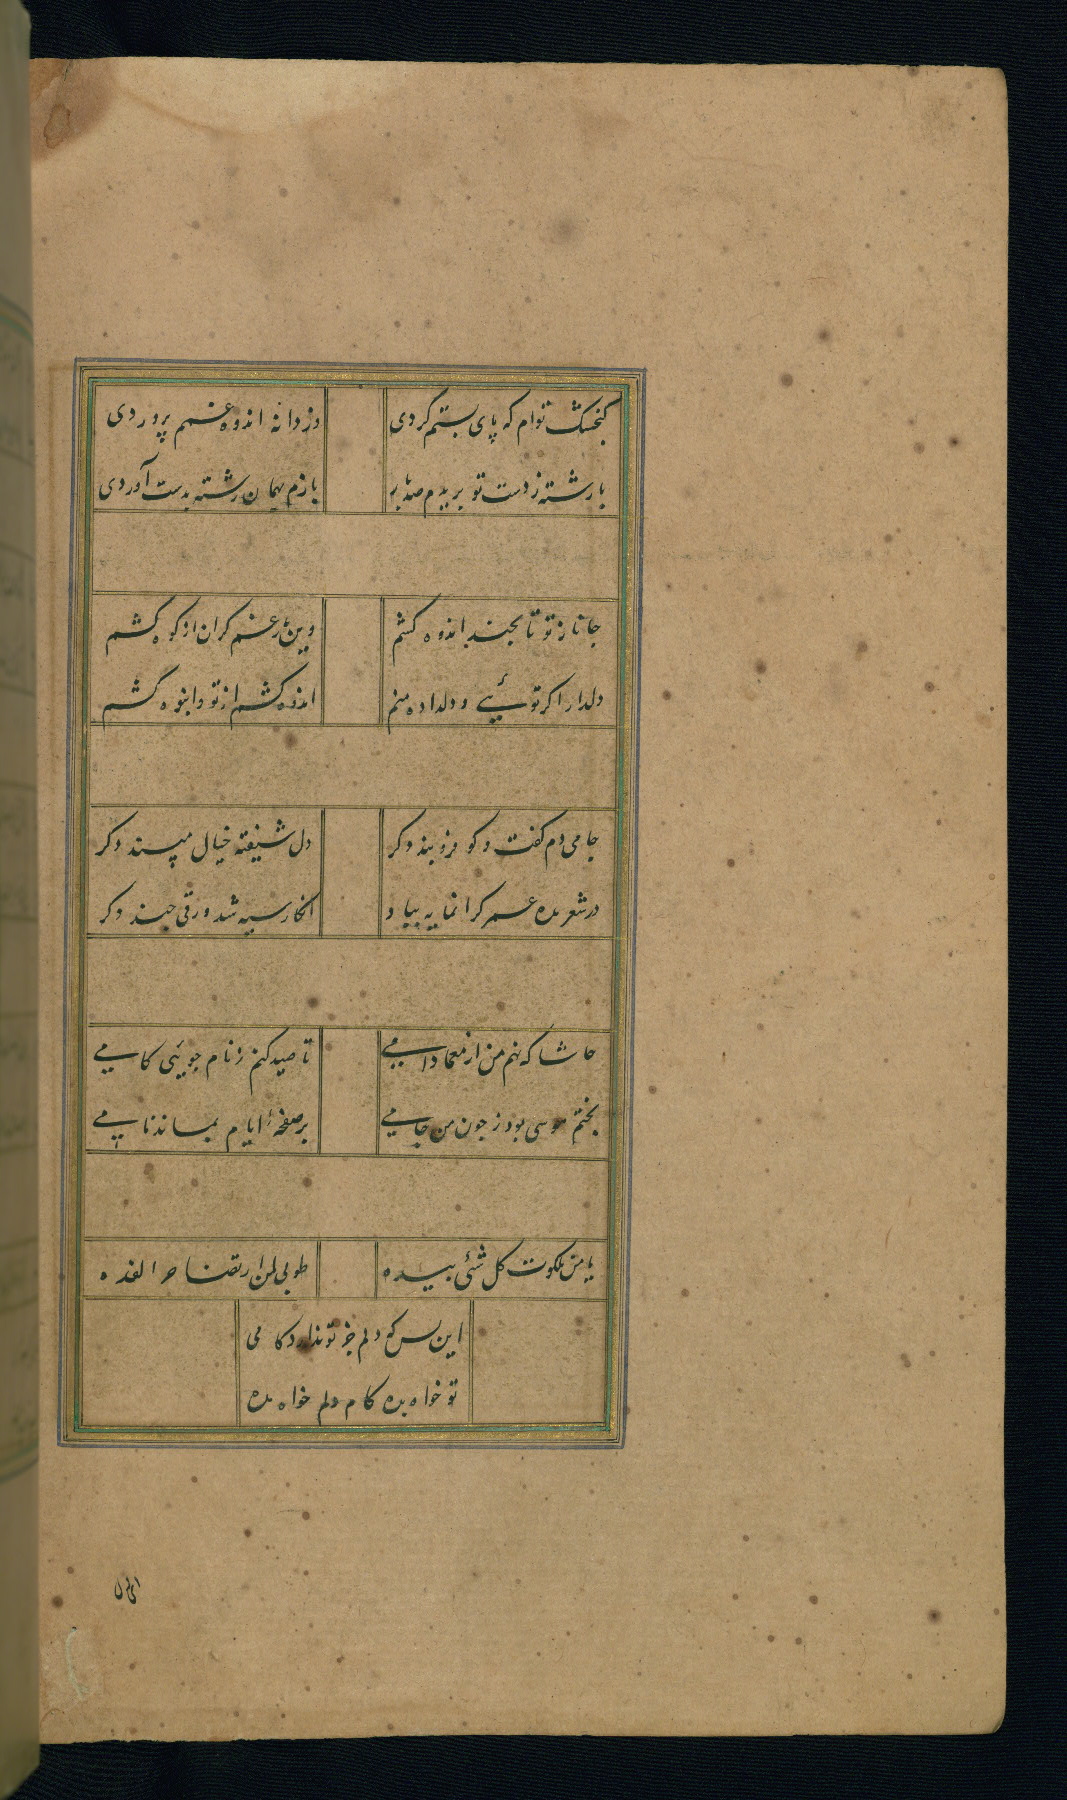 گنجشک توام که پای بستم کردی وز دانه اندوه غم پروردی
با رشته ز دست تو بریدم صد بار بازم بهمان رشته بدست آوردی
جانا ز تو تا بچند اندوه کشم وین غم کران از کوه کشم
دلدار اکر توئی و دلداده منم اندوه کشم از تو و انبوه کشم
جامی دم کفت وکو فرو بند دکر دل شیفته خیال مپسند دکر
در شعر مده عمر کرانمایه بباد انکار سیه شد ورقی چند دکر
حاشا که نهم من از معما دامی تا صید کنم ز نام جوئی کامی
بختم بود ز چون من جامی بر صفحهٔ ایام بماند نامی
یا من ملکوت کل شئی بیده طوبی لمن ارتضاک
این بس که دلم جز تو ندارد کامی
تو خواه بده کام دلم خواه مده